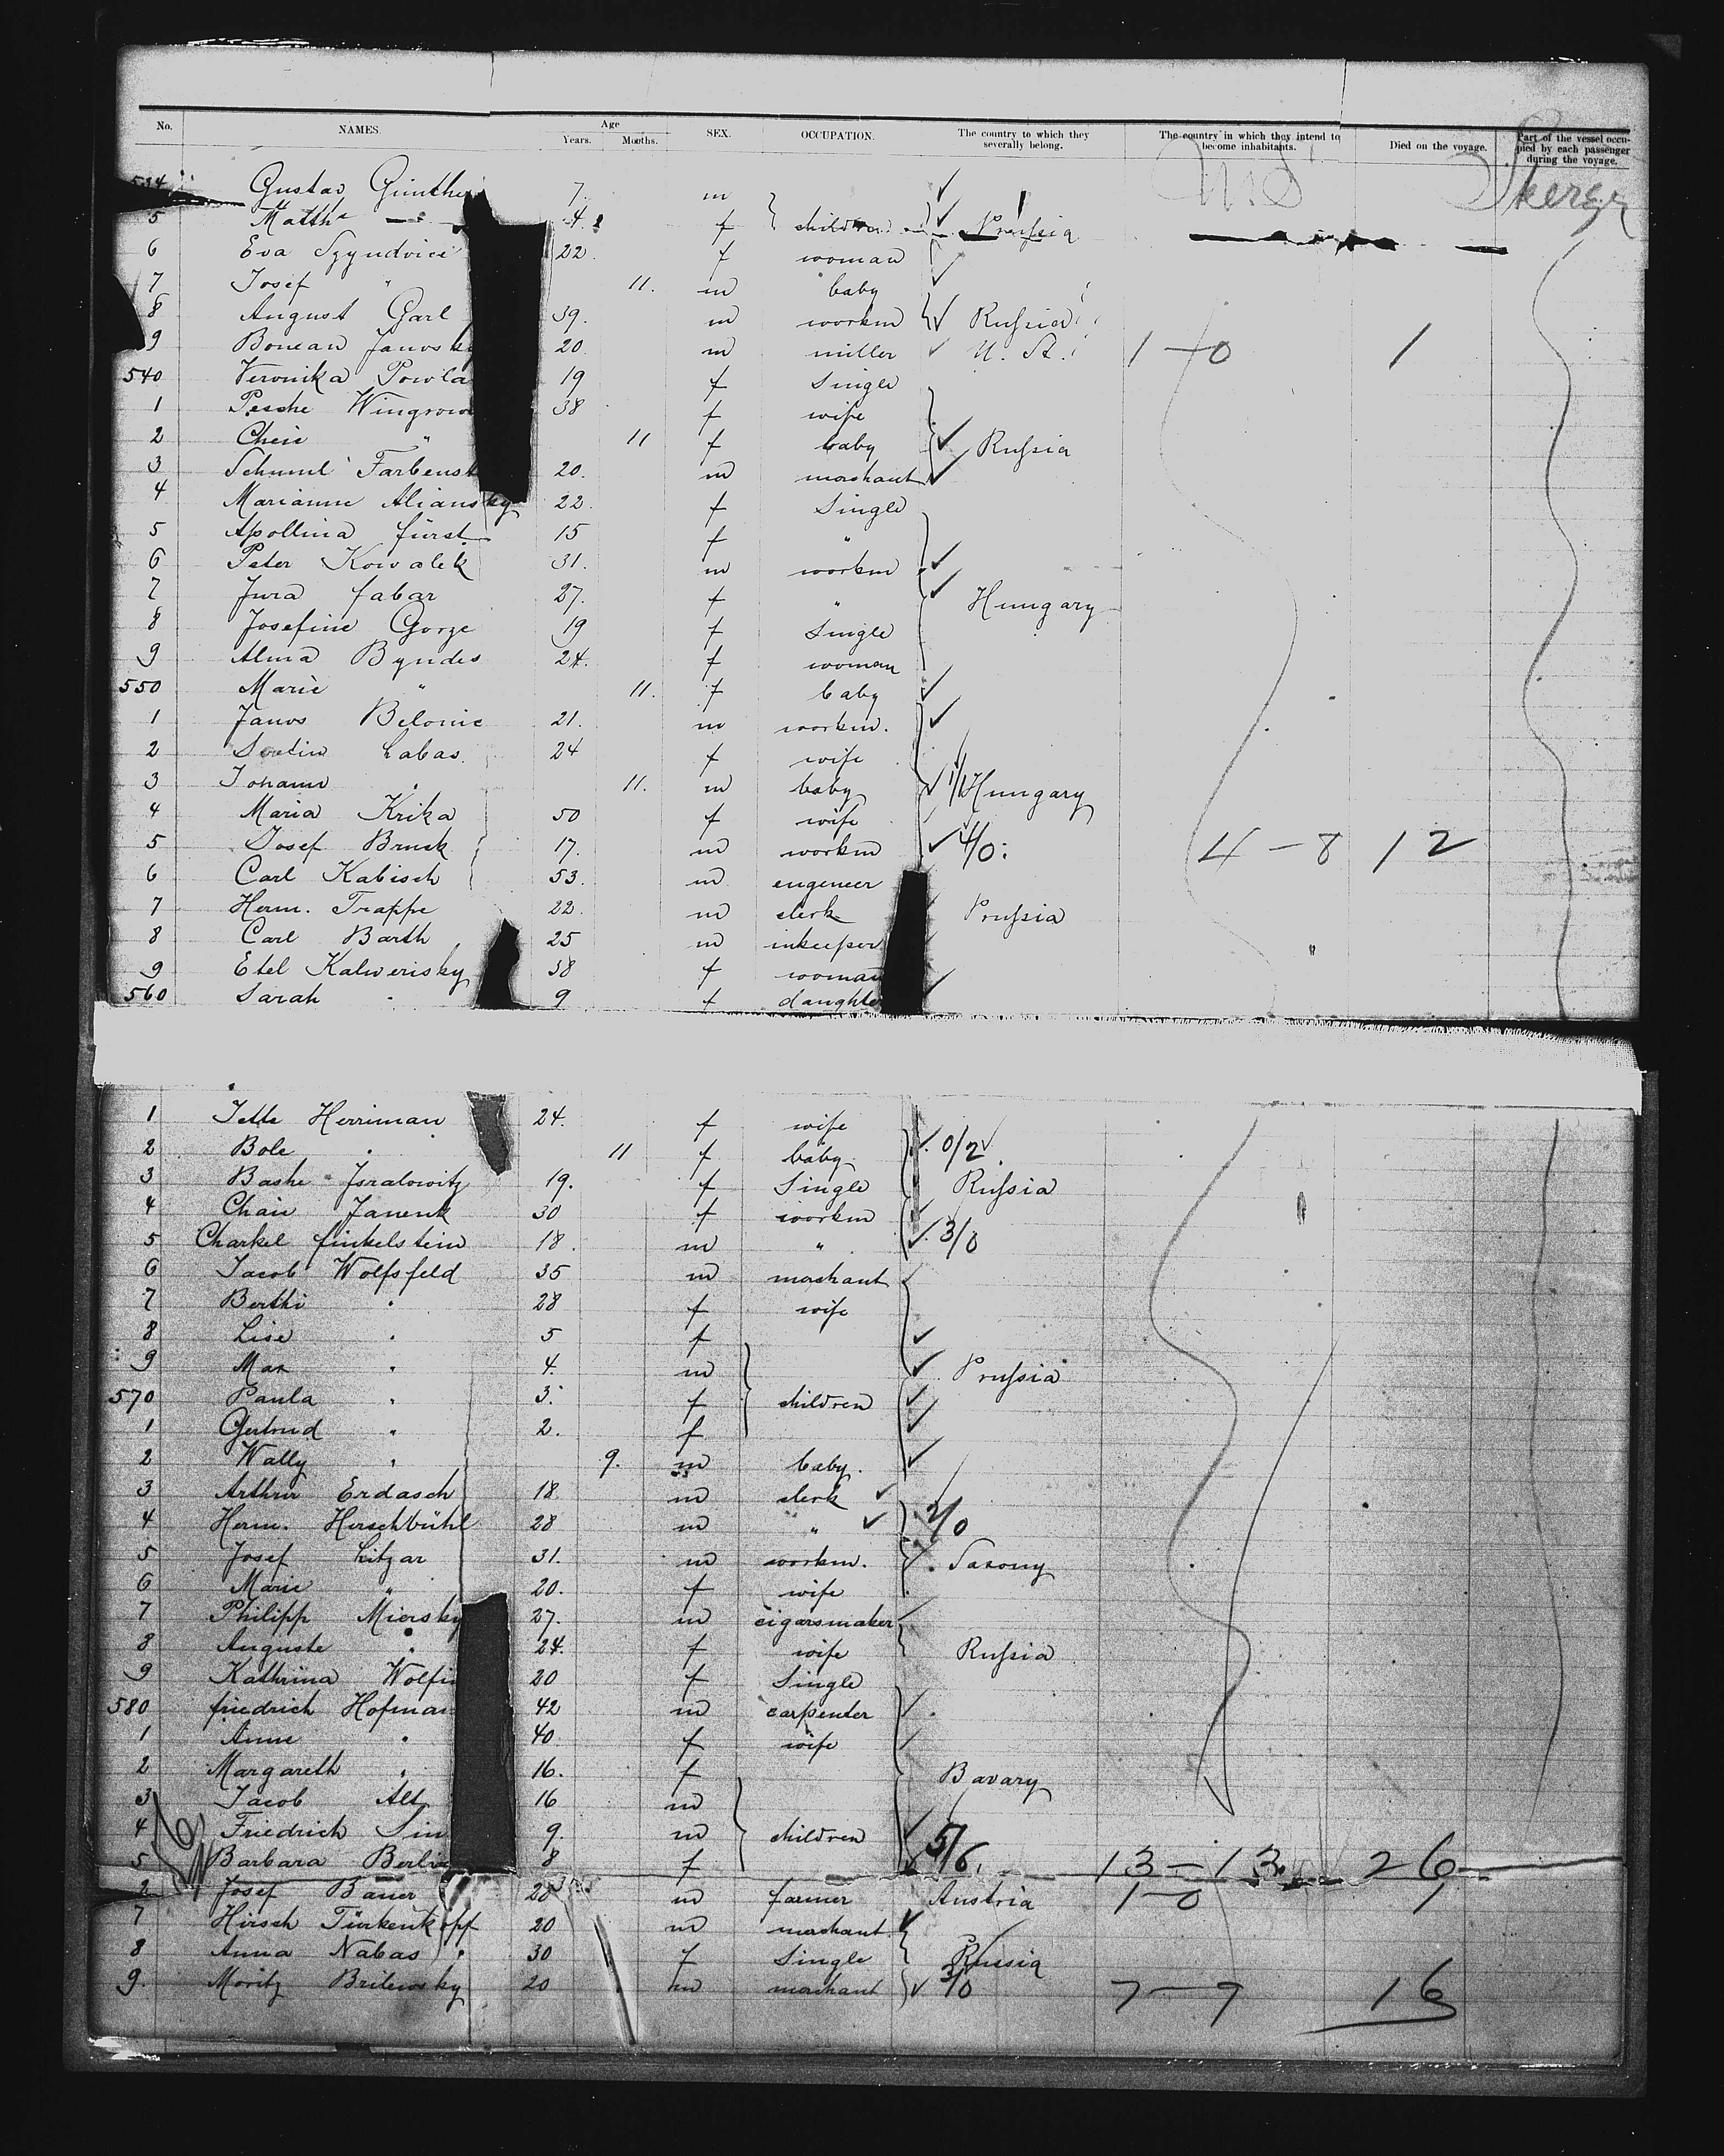 No. NAMES. Age Years. Months. SEX. OCCUPATION. The country to which they severally belong. The country in which they intend to become inhabitants. Died on the voyage. Part of the vessel occupied by each passenger during the voyage.
534 Gustav Günther 7. m
5 Matth 4. f children Prussia
6 Eva 22. f woman
7 Josef " 11. m baby
8 August Garl 39. m workm Russia
9 Janosky 20 m miller U. St. 1 – 0 1
540 Veronika Powla 19 f Single
1 Pesche Wingrow 38 f wife
2 Chein " 11 f baby Russia
3 Schmul Farbenst 20. m merchant
4 Marianne Aliansky 22. f Single
5 Apollina Fürst 15 f "
6 Peter Kowalek 31. m workm
7 Jura Fabar 27. f " Hungary
8 Josefine Gorze 19 f Single
9 Alma Byndes 24. f woman
550 Marie " 11. f baby
1 Janos Belonic 21. m workm.
2 Labas 24 f wife
3 Johann " 11. m baby 1/1 Hungary
4 Maria Krika 50 f wife
5 Josef Bruck 17. m workm 4/0 4 – 8 12
6 Carl Kabisch 53. m engeneer
7 Herm. Trappe 22. m clerk Prussia
8 Carl Barth 25 m inkeeper "
9 Etel Kalwerisky 38 f woman
560 Sarah " 9 f daughte
1 Jette Herriman 24. f wife
2 Bole " 11 f baby 0/2
3 Bashe Isralowitz 19. f Single Russia
4 Chain Janenk 30 f workm
5 Charkel Finkelstein 18. m " 3/0
6 Jacob Wolfsfeld 35 m merchant
7 Berthi " 28 f wife
8 Lise " 5 f
9 Max " 4. m Prussia
570 Paula " 3. f children
1 Gertrud " 2. f
2 Wally " 9. m baby.
3 Arthur Erdasch 18 m clerk
4 Herm. Herschbühl 28 m " 2/0
5 Josef Litzar 31. m workm. Saxony
6 Marie " 20. f wife
7 Philipp Miersky 27. m cigarsmaker
8 Auguste " 24. f wife Russia
9 Kathrina Wolfi 20 f Single
580 Friedrich Hofman 42 m carpenter
1 Anne " 40 f wife
2 Margareth " 16. f Bavary
3 Jacob Alt 16 m
4 Friedrich Sin 9. m children
5 Barbara Berli 8 f 5/6. 13 – 13 26
Josef Bauer 28 m farmer Austria 1 – 0 1
7 Hirsch Türkenkopf 20 m merchant
8 Anna Nabas 30 f Single Russia
9. Moritz Brilewsky 20 m merchant 3/0 7 – 9 16